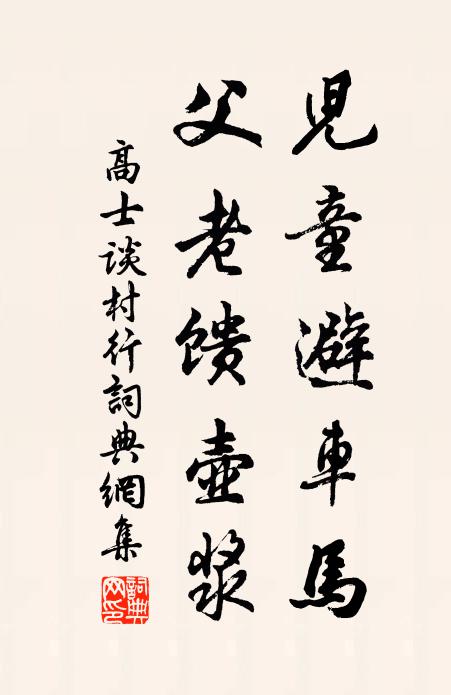 兒童避車馬
父老馈壺漿
高士谈村行詞典網集
詞典網印